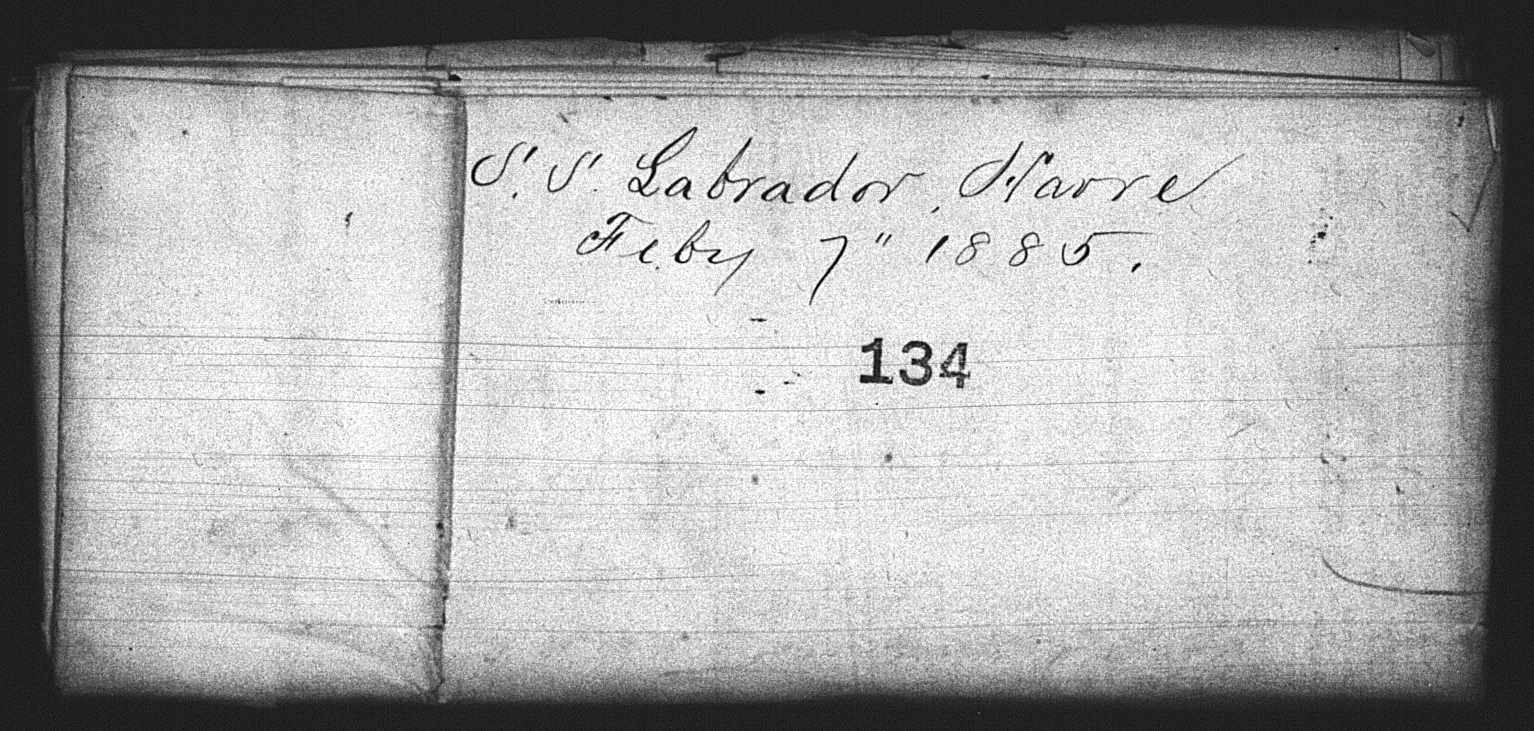 S. S. Labrador, Havre
Feby 7" 1885.
134